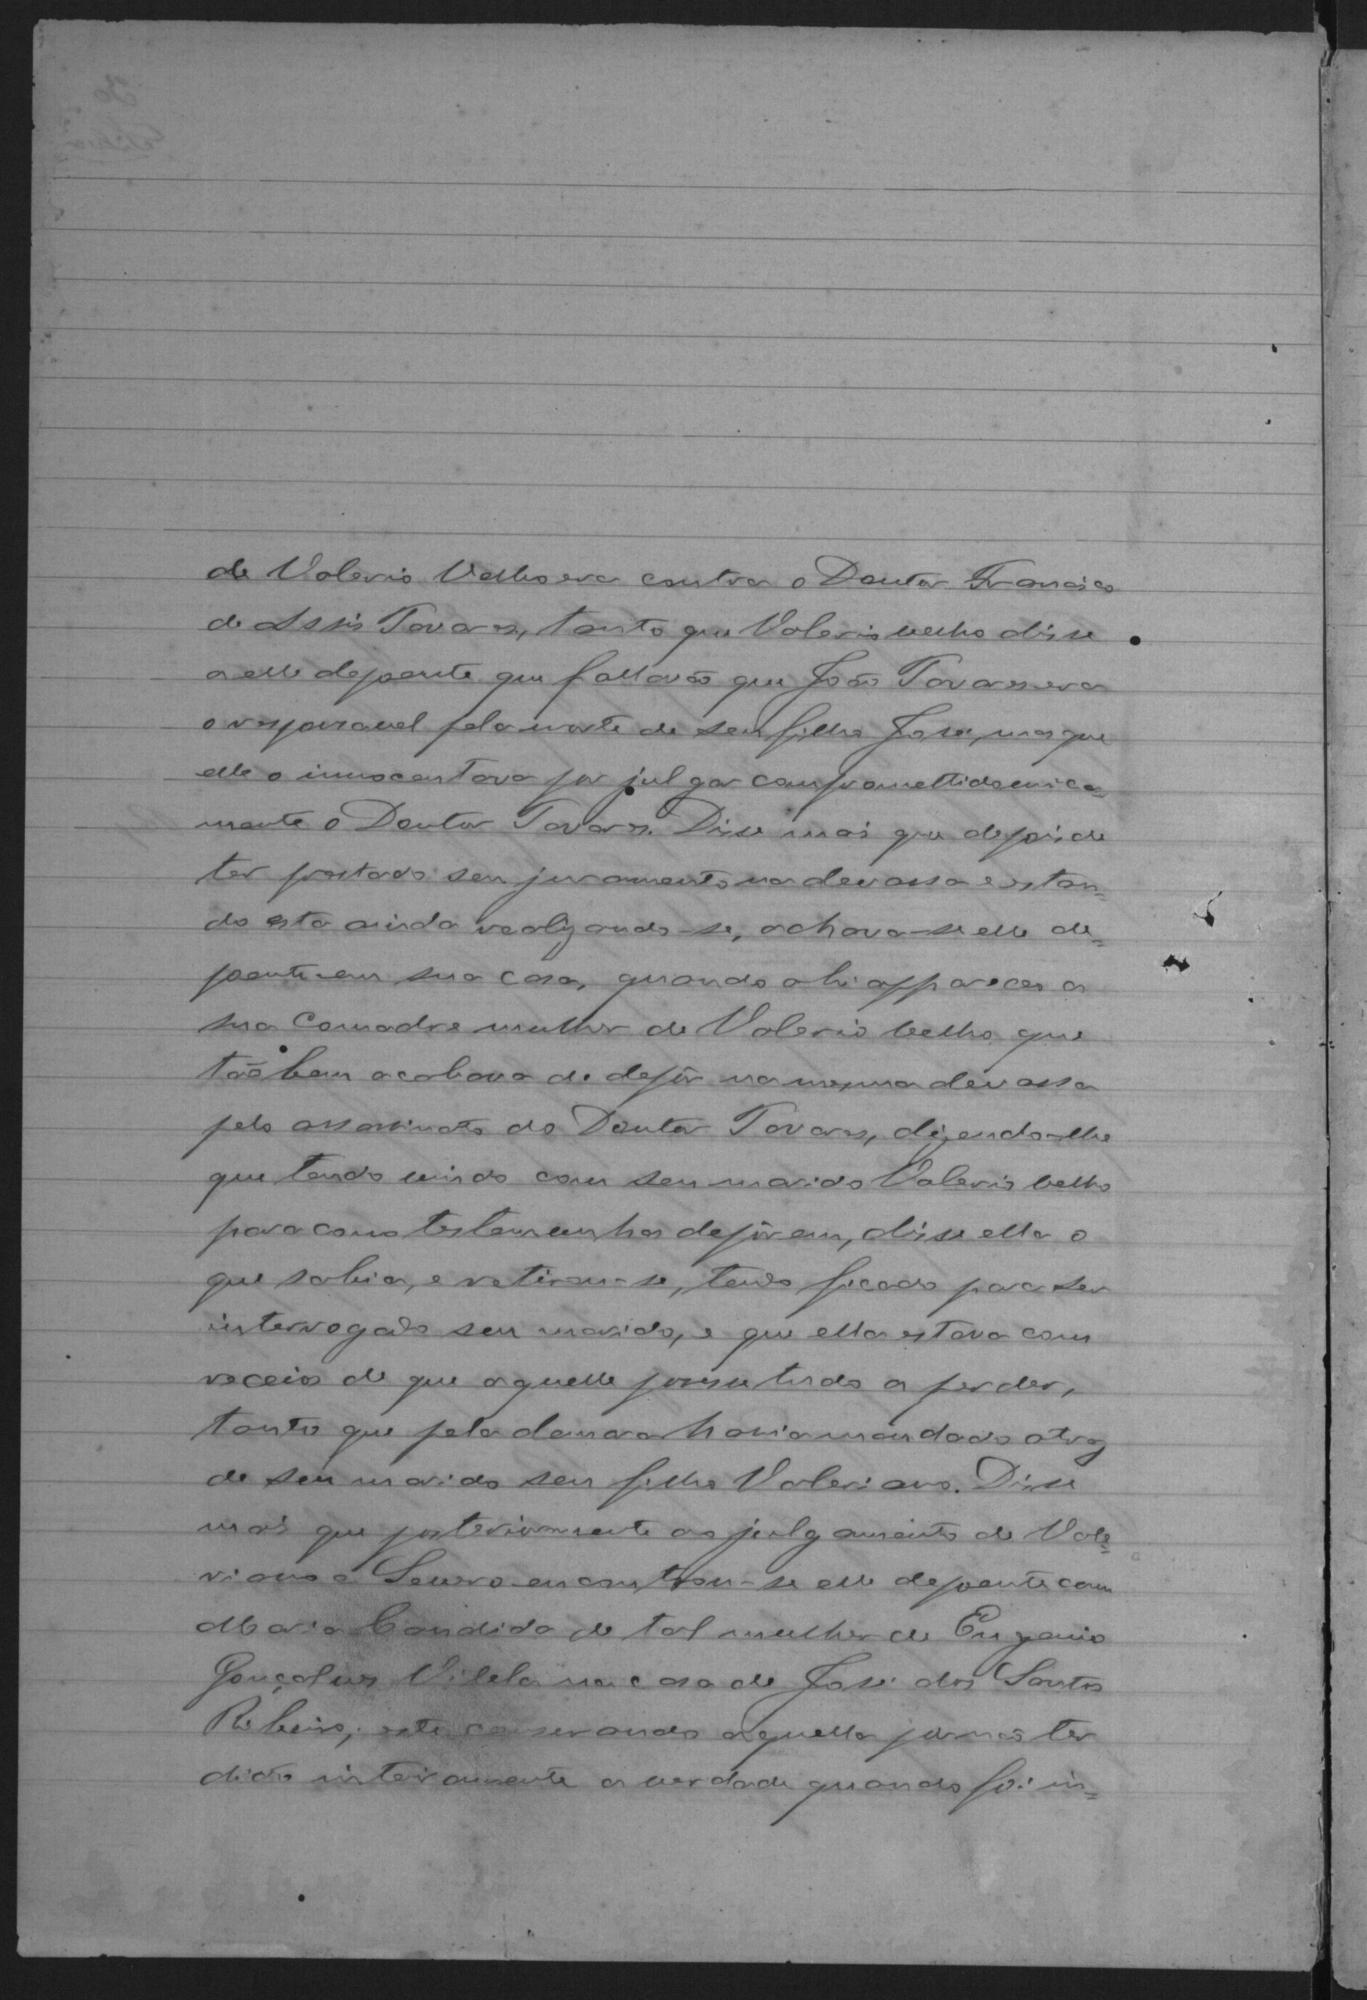 de Valerio Velho era contra o Doutor Francisco
de Assis Tavares, tanto que Valerio velho disse
a elle depoente que fallavão que João Tavares era
o responsavel pela morte de seu filho José, mas que
elle o innocentava por julgar compromettido unica=
mente o Doutor Tavares. Disse mais que depois de
ter prestado seu juramento na devassa e estan=
do esta ainda realizando-se, achava-se elle de=
poente em sua casa, quando ahi appareceu a
sua Comadre mulher de Valerio velho que
tãobem acabava de depôr na mesma devassa
pelo assassinato do Doutor Tavares, dizendo-lhe
que tendo vindo com seu marido Valerio velho
para como testemunhas depôrem, disse ella o
que sabia, e retirou-se, tendo ficado para ser
interrogado seu marido, e que ella estava com
receio de que aquelle pozesse tudo a perder,
tanto que pela demora havia mandado atraz
de seu marido seu filho Valeriano. Disse
mais que posteriormente ao julgamento de Vale=
riano e Severo encontrou-se elle depoente com
Maria Candida de tal mulher de Eugenio
Gonçalves Vilela na casa de José dos Santos
Ribeiro, este censurando aquella por não ter
dito inteiramente a verdade quando foi in=